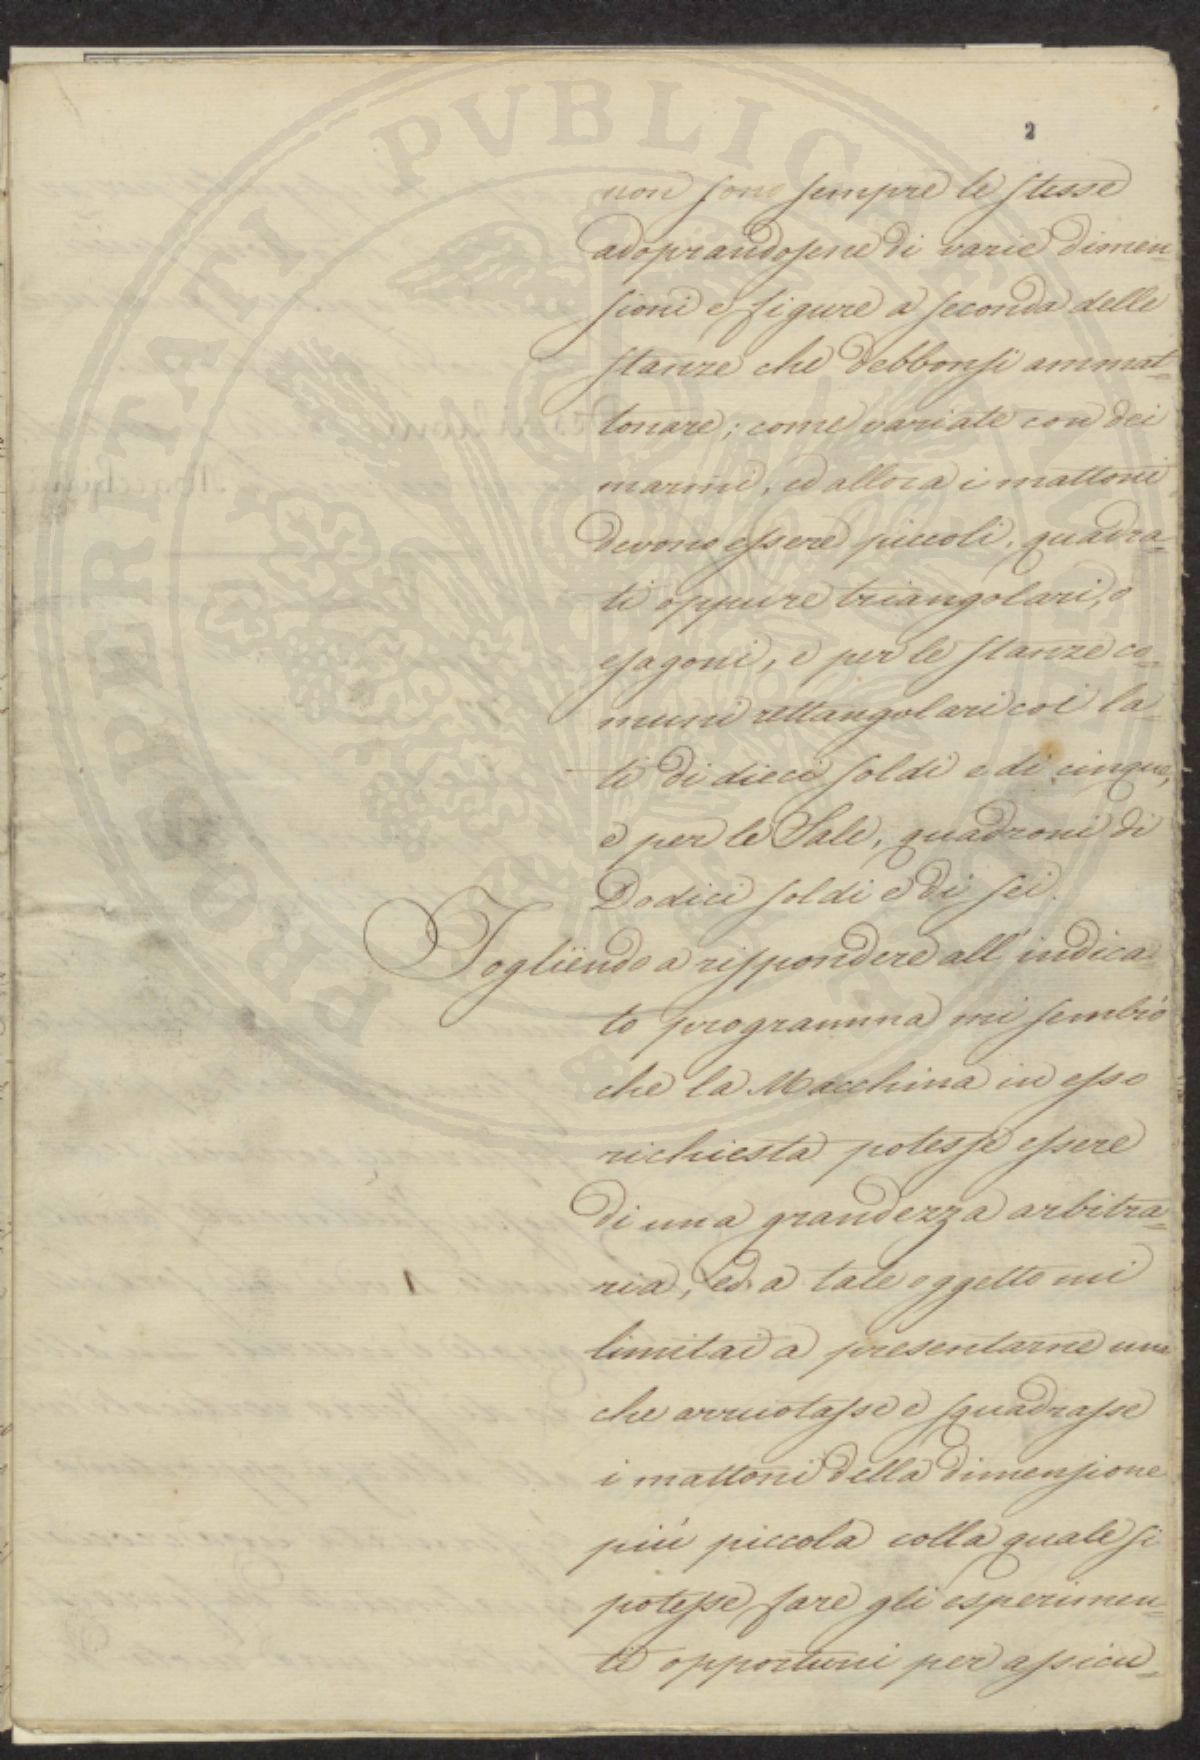 PROSPERITATI PVBLICAE AVGENDAE
2
non sono sempre le stesse
adoprandosene di varie dimen=
sioni e figure a seconda delle
stanze che debbonsi ammat=
tonare; come variate con dei
marmi, ed allora i mattoni
devono essere piccoli, quadra=
ti oppure triangolari, o
esagoni, e per le stanze co=
muni rettangolari coi la=
ti di dieci soldi e di cinque,
e per le Sale, quadroni di
Dodici soldi e di sei.
Togliendo a rispondere all'indica=
to programma mi sembrò
che la Macchina in esso
richiesta potesse essere
di una grandezza arbitra=
ria, ed a tale oggetto mi
limitai a presentarne una
che arruotasse e squadrasse
i mattoni della dimensione
più piccola colla quale si
potesse fare gli esperimen=
ti opportuni per assicu=